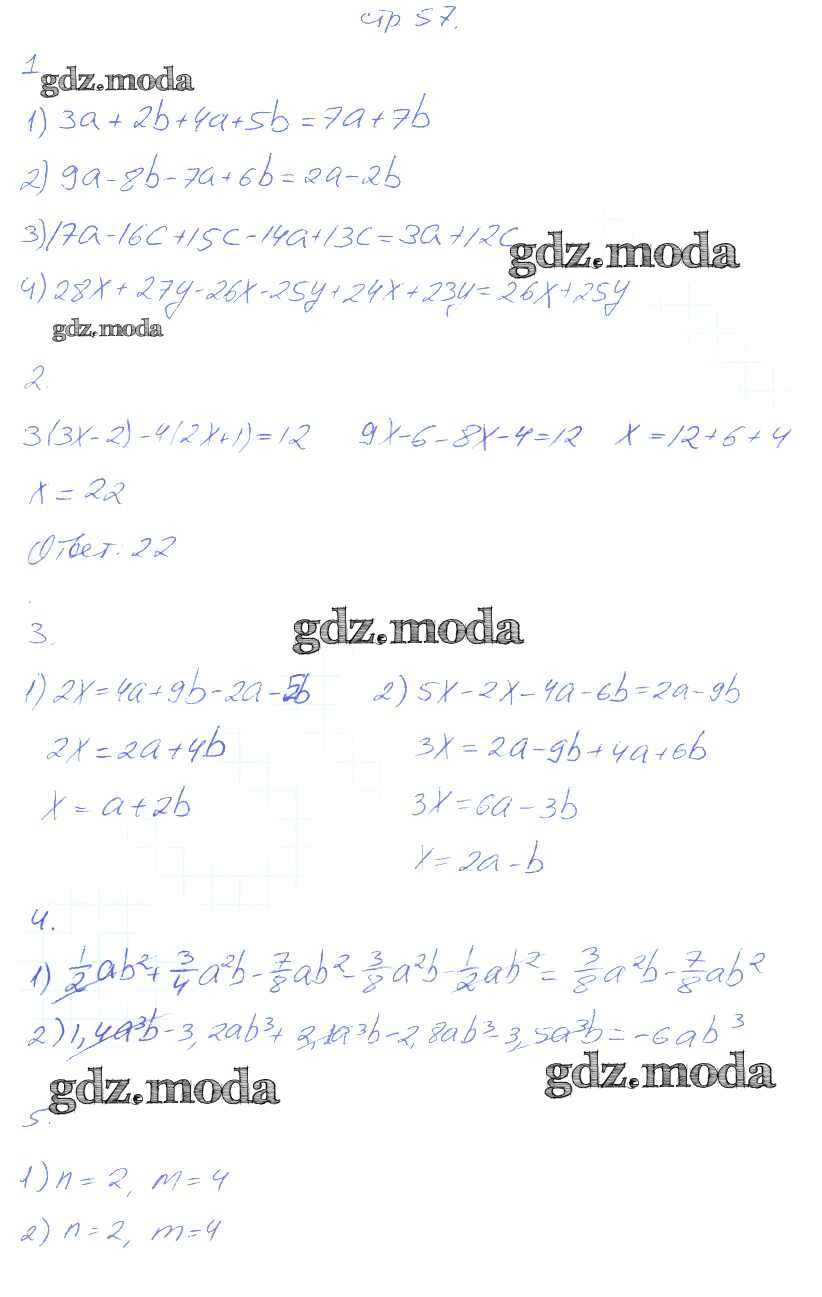 стр 57.
1
gdz.moda
1) 3a + 2b + 4a + 5b = 7a + 7b
2) 9a - 8b - 7a + 6b = 2a - 2b
3) 17a - 16c + 15c - 14a + 13c = 3a + 12c
gdz.moda
4) 28x + 27y - 26x - 25y + 24x + 23y = 26x + 25y
gdz.moda
2.
3(3x - 2) - 4(2x + 1) = 12 9x - 6 - 8x - 4 = 12 x = 12 + 6 + 4
x = 22
Ответ: 22
gdz.moda
3.
1) 2x = 4a + 9b - 2a - 5b 2) 5x - 2x - 4a - 6b = 2a - 9b
2x = 2a + 4b 3x = 2a - 9b + 4a + 6b
x = a + 2b 3x = 6a - 3b
x = 2a - b
4.
1) 1/2 ab² + 3/4 a²b - 7/8 ab² - 3/8 a²b - 1/2 ab² = 3/8 a²b - 7/8 ab²
2) 1,4a³b - 3,2ab³ + 2,1a³b - 2,8ab³ - 3,5a³b = -6ab³
gdz.moda gdz.moda
5.
1) n = 2, m = 4
2) n = 2, m = 4